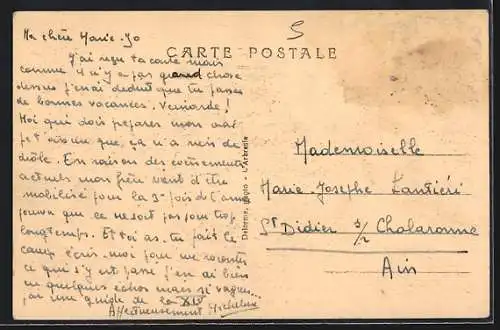 Ma chère Marie-Jo
5
CARTE POSTALE
J'ai reçu ta carte mais
comme il n'y a pas grand chose
dessus j'en ai déduit que tu passes
de bonnes vacances. Veinarde!
Moi qui dois préparer mon oral
je t'assure que, ça n'a rien de
drôle. En raison des événements
actuels mon frère vient d'être
mobilisé pour la 3e fois de l'année
pourvu que ce ne soit pas pour trop
longtemps. Et toi as tu fait le
camp écris-moi pour me raconter
ce qui s'y est passé j'en ai bien
eu quelques échos mais si vagues...
j'ai une guide de la XIV
Affectueusement
Delorme, photo - L'Arbresle
Mademoiselle
Marie-Josèphe Lantiéri
St Didier s/ Chalaronne
Ain